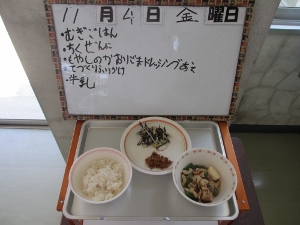 11月4日金曜日
・むぎごはん
・ちくぜんに
・もやしのかおりごまドレッシングあえ
・てづくりふりかけ
・牛乳